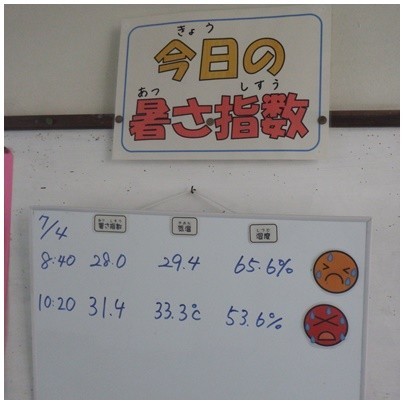 きょう
今日の
あつ しすう
暑さ指数
7/4
暑さ指数 気温 湿度
8:40 28.0 29.4 65.6%
10:20 31.4 33.3℃ 53.6%